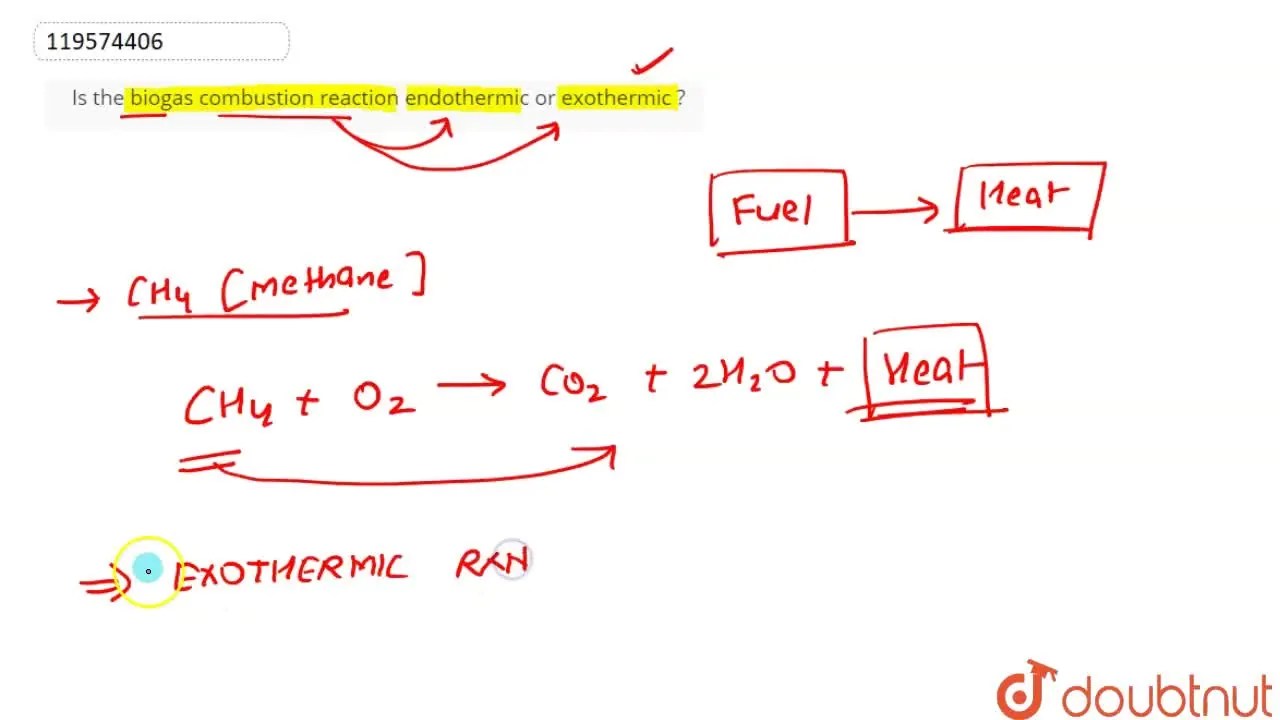 119574406
Is the biogas combustion reaction endothermic or exothermic ?
Fuel → Heat
→ CH4 [Methane]
CH4 + O2 → CO2 + 2H2O + Heat
⇒ EXOTHERMIC RXN
doubtnut